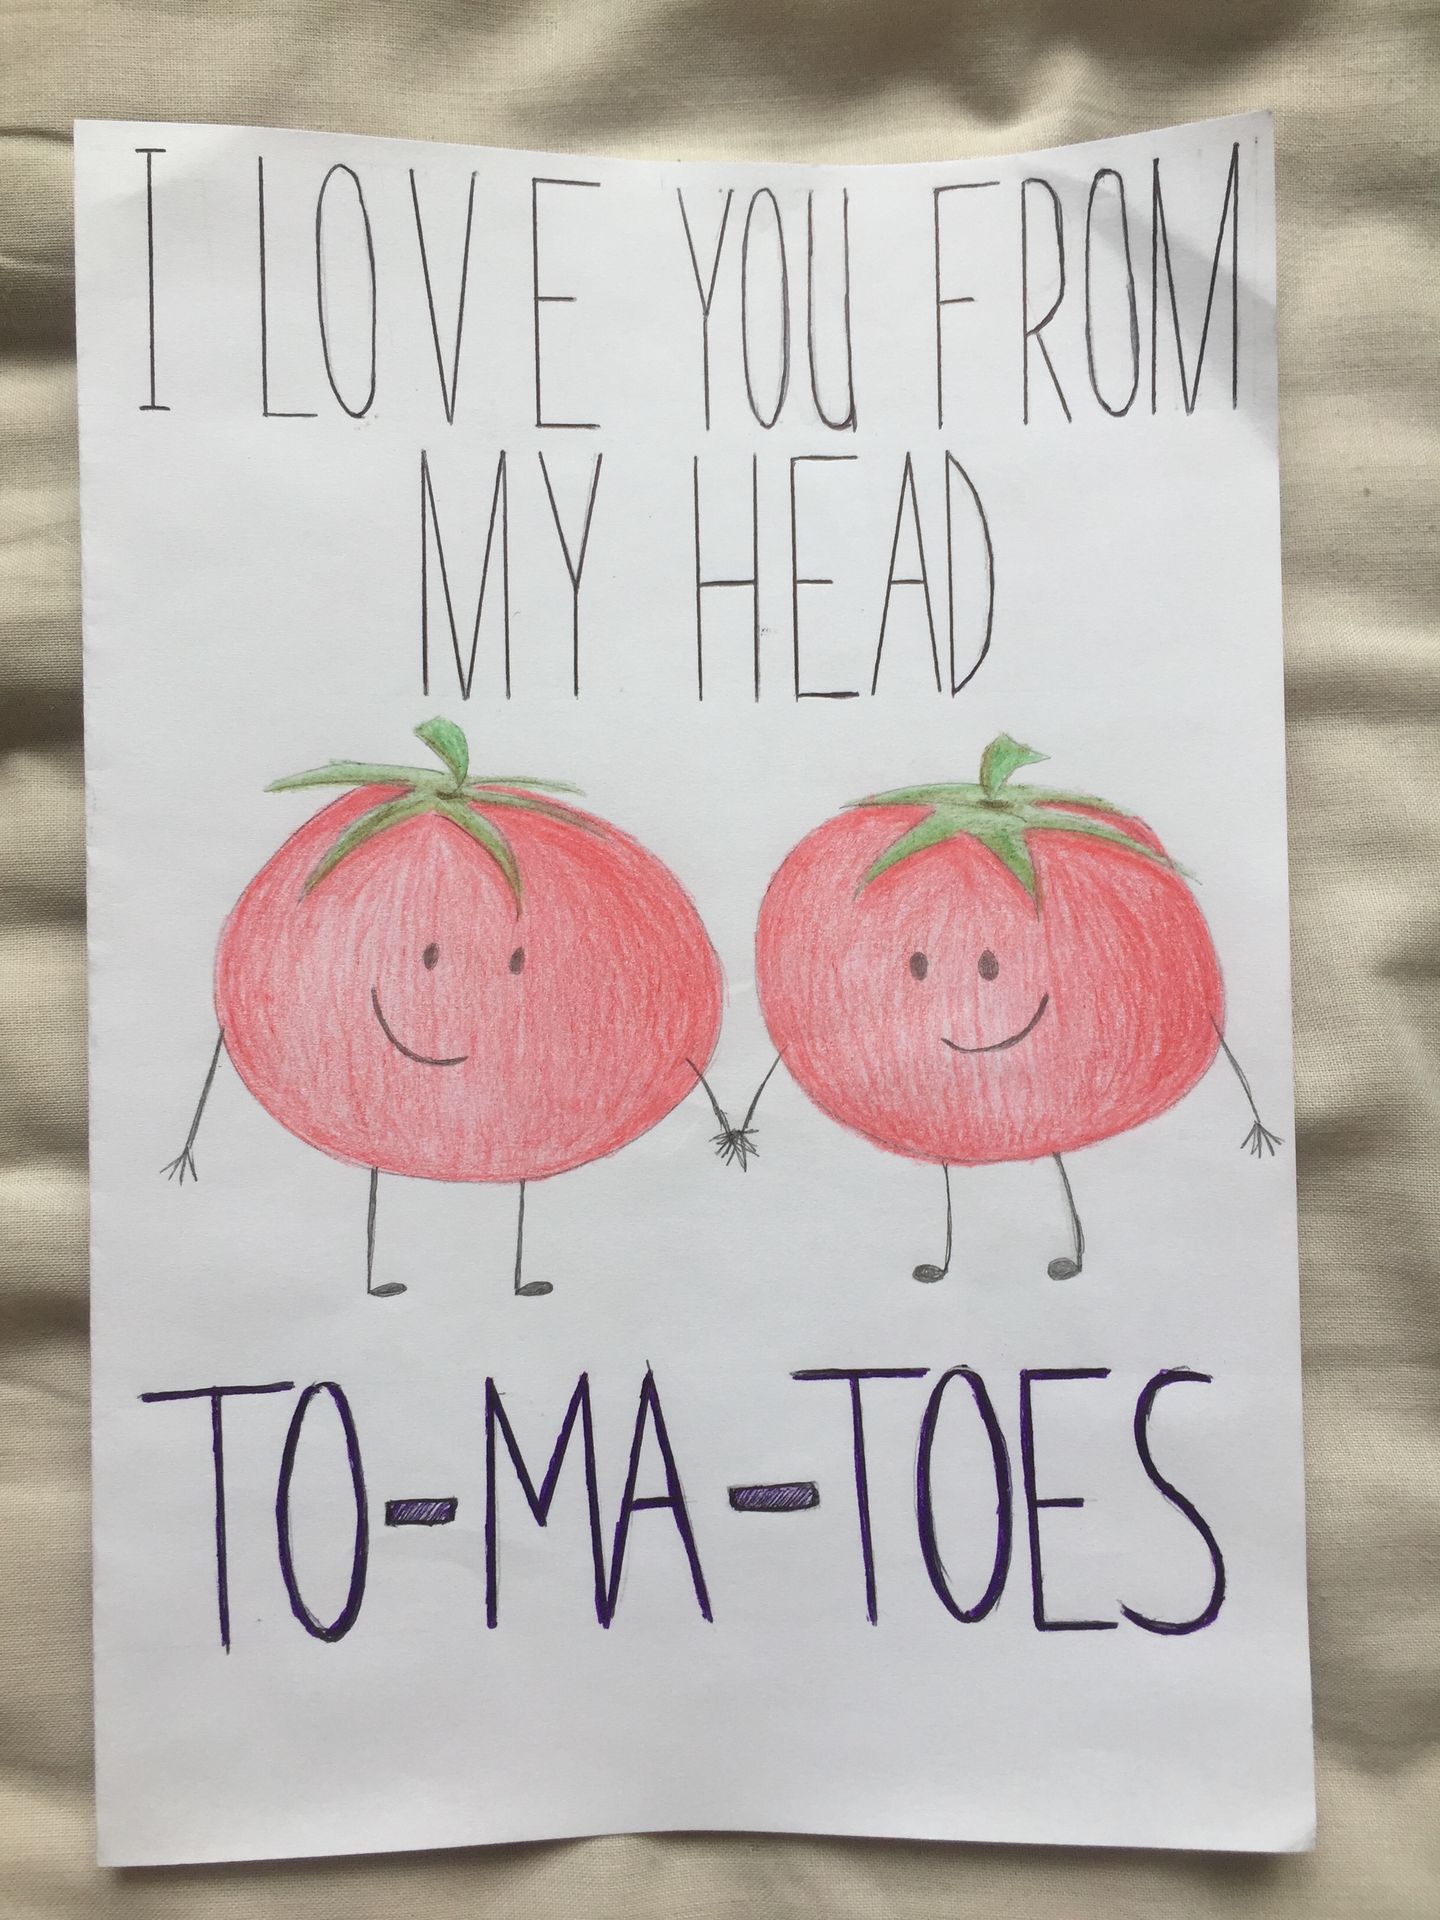 I LOVE YOU FROM
MY HEAD
TO-MA-TOES